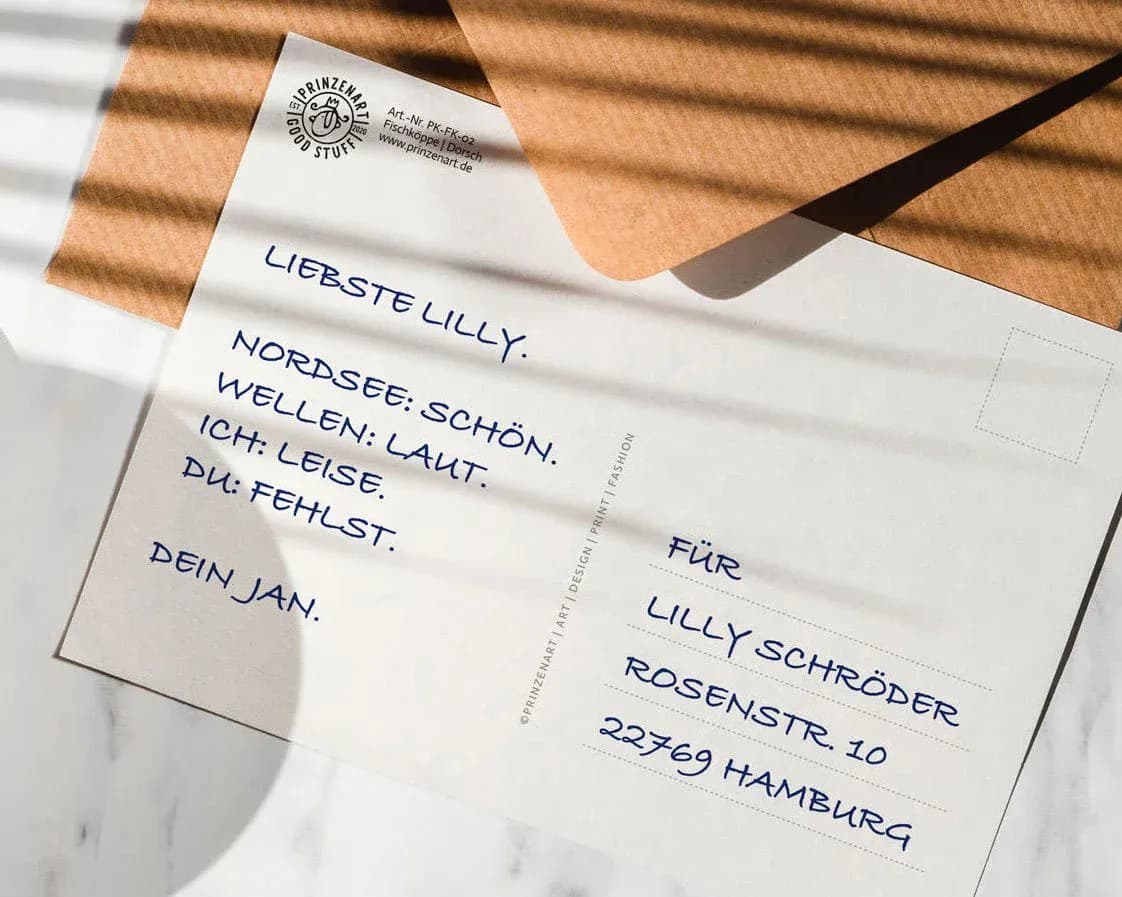 PRINZENART
EST. 2020
GOOD STUFF!
Art.-Nr. PK-FK-02
Fischköppe | Dorsch
www.prinzenart.de
LIEBSTE LILLY.
NORDSEE: SCHÖN.
WELLEN: LAUT.
ICH: LEISE.
DU: FEHLST.
DEIN JAN.
©PRINZENART | ART | DESIGN | PRINT | FASHION
FÜR
LILLY SCHRÖDER
ROSENSTR. 10
22769 HAMBURG